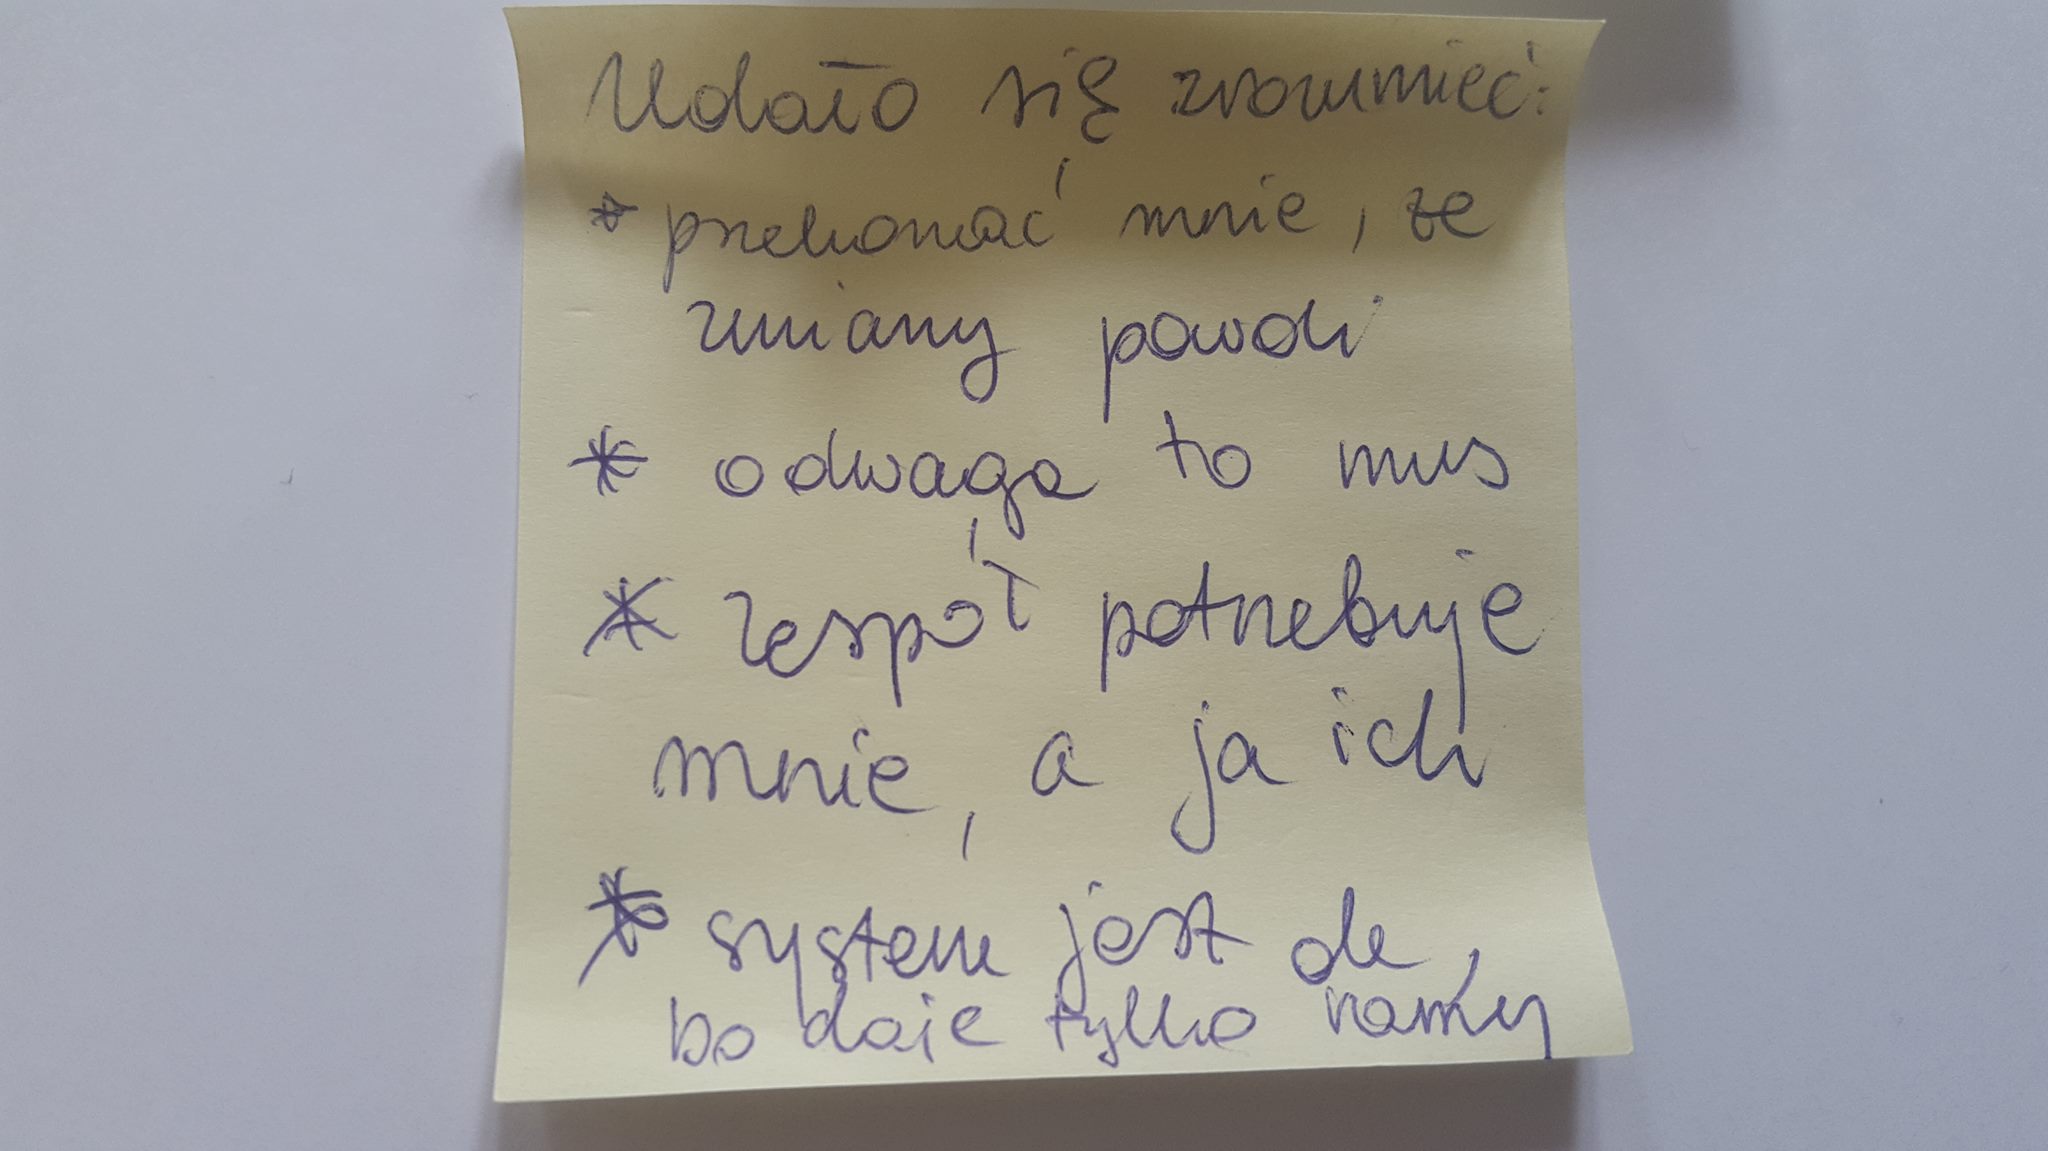 Udało się zrozumieć:
* przekonać mnie, że
zmiany powoli
* odwaga to mus
* zespół potrzebuje
mnie, a ja ich
* system jest ok,
bo daje tylko ramy